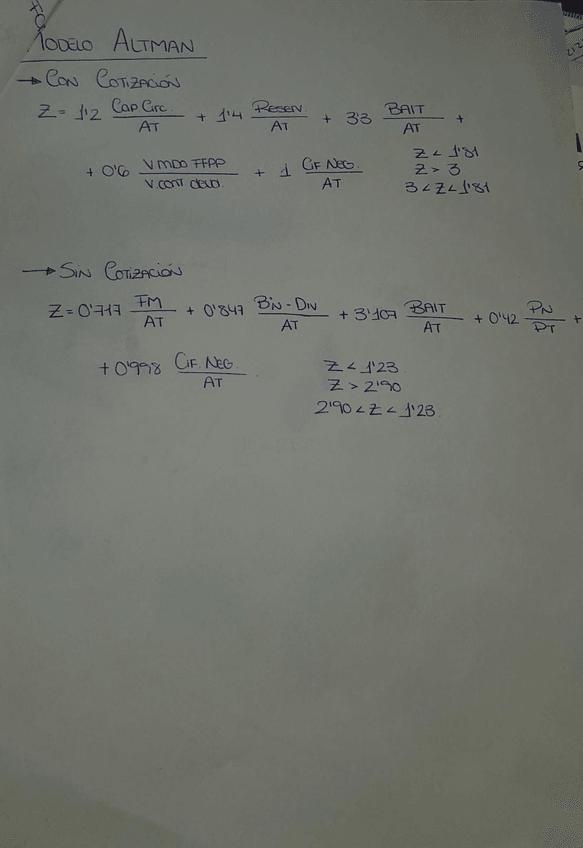 MODELO ALTMAN
→ CON COTIZACIÓN
Z = 1'2 Cap Circ./AT + 1'4 Reserv/AT + 3'3 BAIT/AT +
+ 0'6 V MDO FFPP/V. CONT DEUD. + 1 CIF NEG./AT
Z < 1'81
Z > 3
3 < Z < 1'81
→ SIN COTIZACIÓN
Z = 0'717 FM/AT + 0'847 BºN - DIV/AT + 3'107 BAIT/AT + 0'42 PN/PT +
+ 0'998 CIF. NEG./AT
Z < 1'23
Z > 2'90
2'90 < Z < 1'23